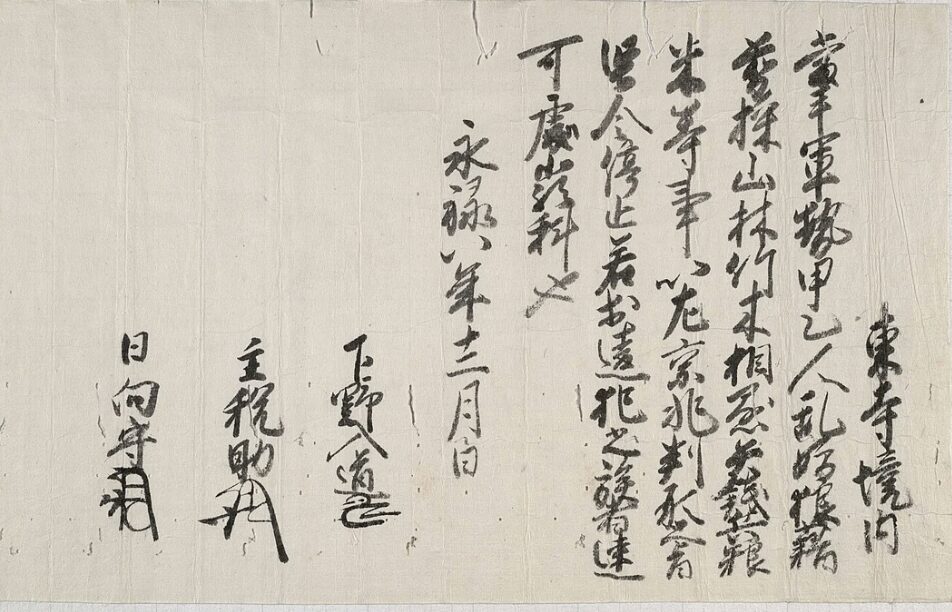 東寺境内
當手軍勢甲乙人乱妨狼藉
剪採山林竹木相懸矢銭兵粮
米等事以左京兆判形旨
堅令停止若於違犯之族者速
可處嚴科也
永禄八年十二月日
下野入道
主税助
日向守